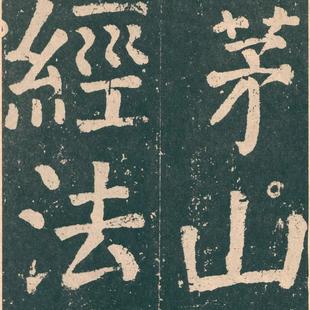 茅山
經法